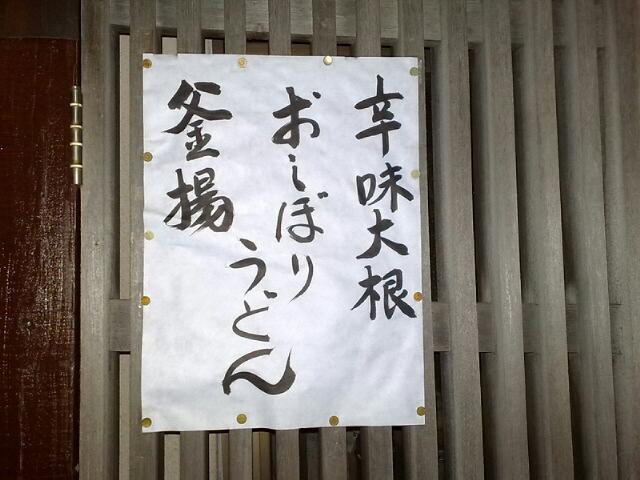 辛味大根
おしぼり
うどん
釜揚